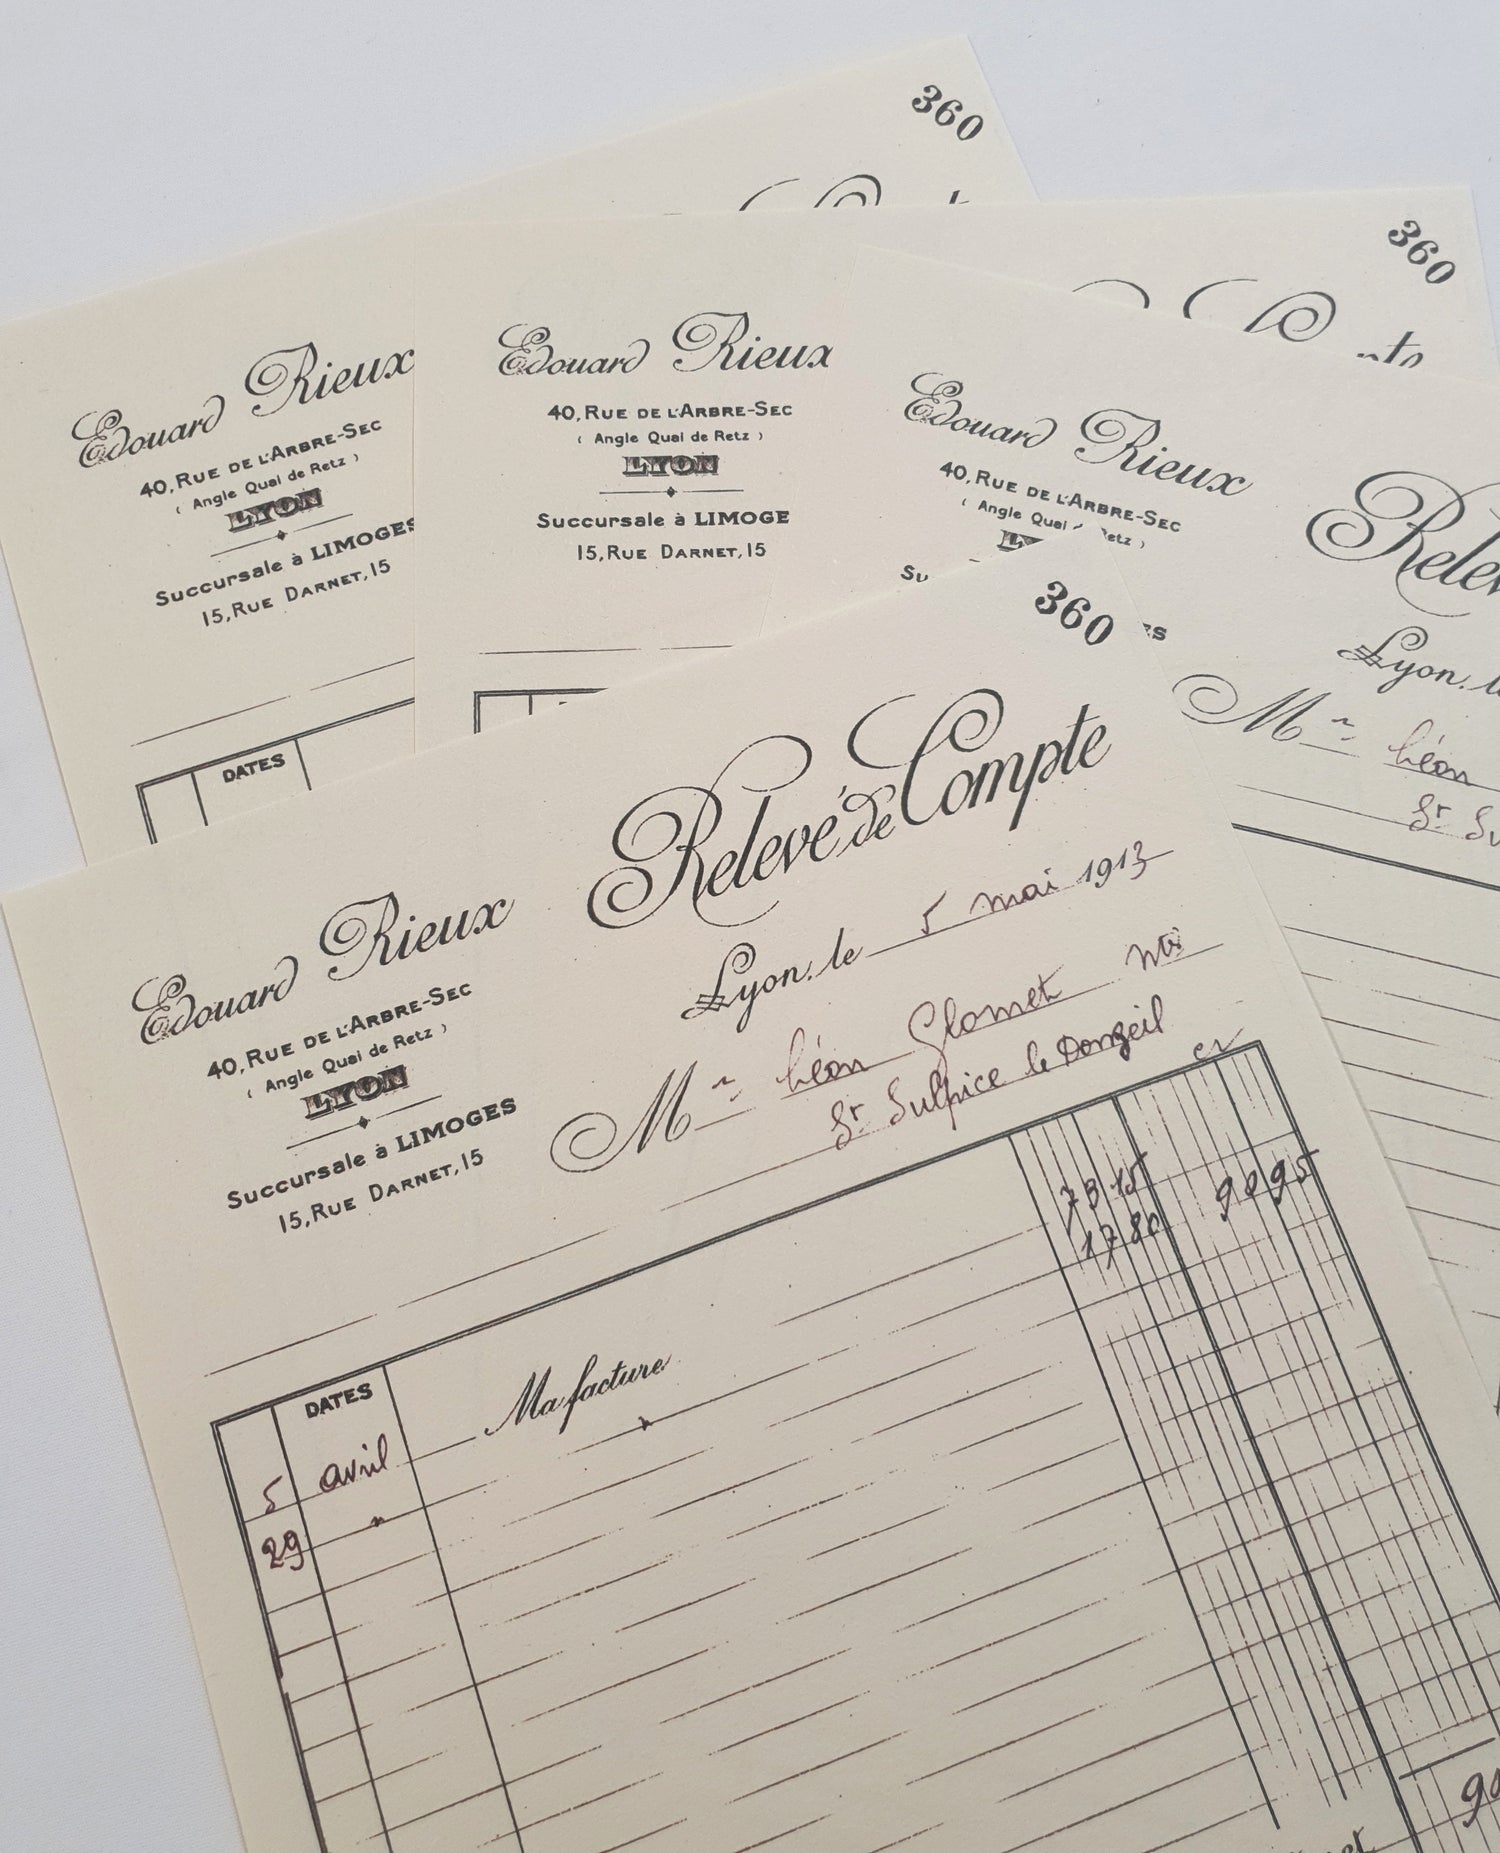 360
Edouard Rieux
40, RUE DE L'ARBRE-SEC
( Angle Quai de Retz )
LYON
Succursale à LIMOGES
15, RUE DARNET, 15
DATES
360
Edouard Rieux
40, RUE DE L'ARBRE-SEC
( Angle Quai de Retz )
LYON
Succursale à LIMOGE
15, RUE DARNET, 15
Edouard Rieux
40, RUE DE L'ARBRE-SEC
( Angle Quai etz )
Su
ES
Rele
Lyon, l
Mr Léon
St Su
360
Relevé de Compte
Lyon, le 5 mai 1913
Edouard Rieux
40, RUE DE L'ARBRE-SEC
( Angle Quai de Retz )
LYON
Succursale à LIMOGES
15, RUE DARNET, 15
Mr Léon Glomet
St Sulpice le Donzeil
DATES
5 avril Ma facture 73 15 90 95
29 " " 17 80
90